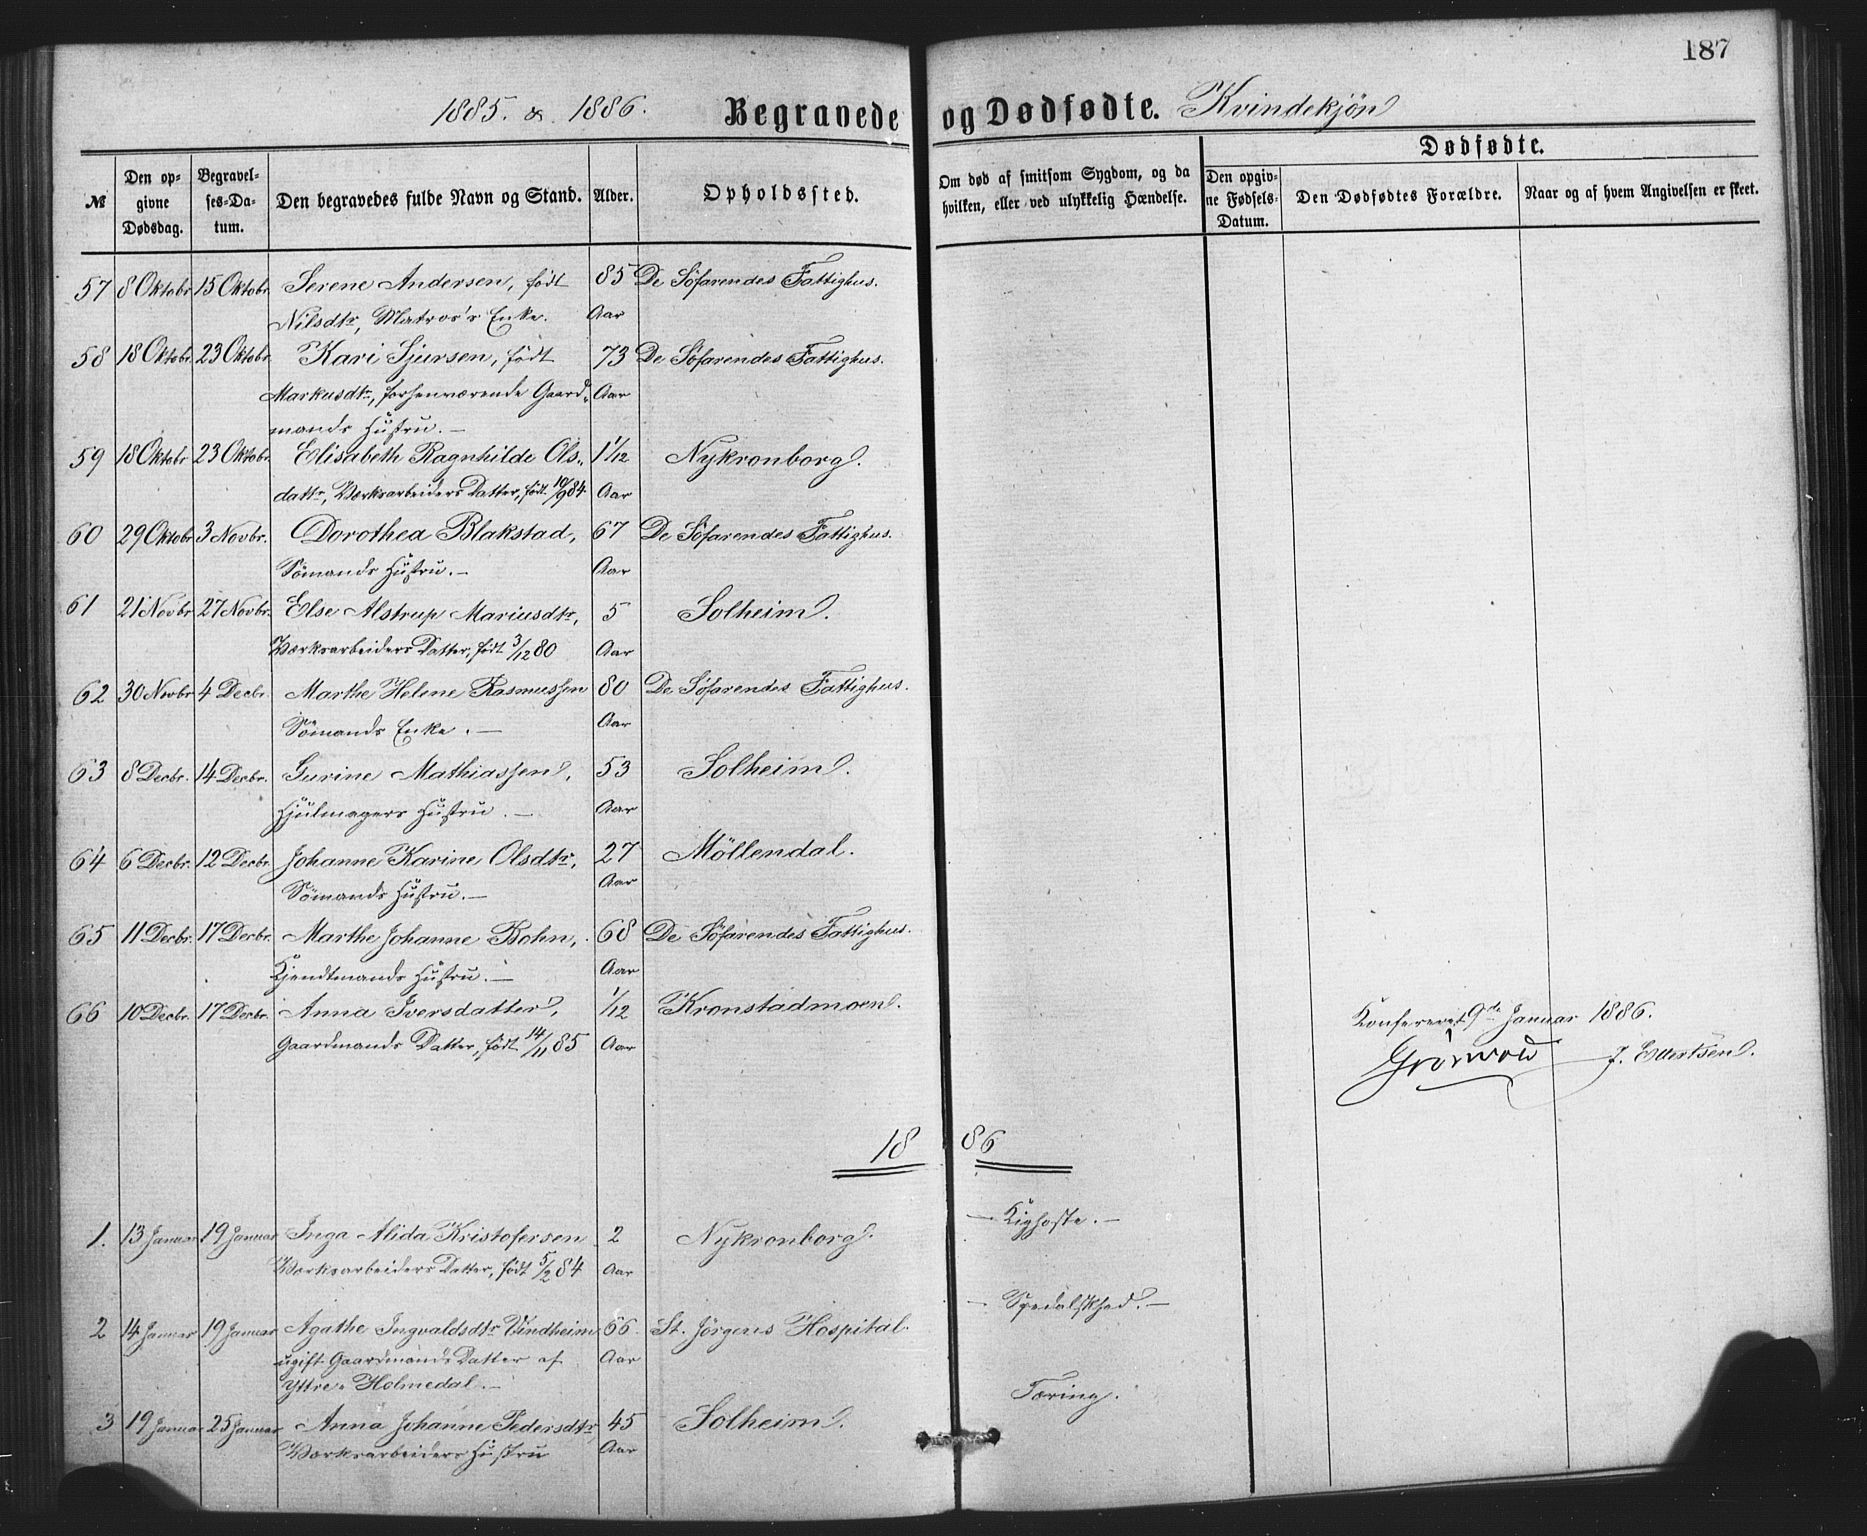 187
1885. & 1886. Begravede og Dødfødte. Kvindekjön
№ Den opgivne Dødsdag. Begravelses-Datum. Den begravedes fulde Navn og Stand. Alder. Opholdssted. Om død af smitsom Sygdom, og da hvilken, eller ved ulykkelig Hændelse. Dødfødte. Den opgivne Fødsels-Datum. Den Dødfødtes Forældre. Naar og af hvem Angivelsen er skeet.
57 8 Oktobr 15 Oktobr. Serene Andersen, født 85 De Söfarendes Fattighus.
Nilsdtr, Matros's Enke. Aar
58 18 Oktobr. 23 Oktobr. Kari Sjursen, født 73 De Söfarendes Fattighus.
Markusdtr, forhenværende Gaard„ Aar
mands Hustru. —
59 18 Oktobr 23 Oktobr. Elisabeth Ragnhilde Ols„ 1 1/12 Nykronborg.
dattr, Værksarbeiders Datter, født 10/9 84. Aar
60 29 Oktobr 3 Novbr. Dorothea Blakstad, 67 De Söfarendes Fattighus.
Sömands Hustru. — Aar
61 21 Novbr 27 Novbr. Else Alstrup Mariusdtr, 5 Solheim.
Værksarbeiders Datter, født 3/12 80 Aar
62 30 Novbr 4 Decbr. Marthe Helene Rasmussen 80 De Söfarendes Fattighus.
Sömands Enke. — Aar
63 8 Decbr. 14 Decbr. Gurine Mathiassen, 53 Solheim.
Hjulmagers Hustru. — Aar
64 6 Decbr. 12 Decbr. Johanne Karine Olsdtr, 27 Möllendal.
Sömands Hustru. — Aar
65 11 Decbr. 17 Decbr. Marthe Johanne Bohn, 68 De Söfarendes Fattighus.
Kjendtmands Hustru. — Aar
66 10 Decbr. 17 Decbr. Anna Iversdatter, 1/12 Kronstadmoen.
Gaardmands Datter, født 14/11 85 Aar
Konfereret 9de Januar 1886.
Grönvold J. Ellertsen.
1886
1. 13 Januar 19 Januar Inga Alida Kristofersen 2 Nykronborg. — Kighoste. —
Værksarbeiders Datter, født 5/2 84 Aar
2 14 Januar 19 Januar Agathe Ingvaldsdtr Vindheim 66 St. Jörgens Hospital. — Spedalskhed. —
ugift Gaardmands Datter af Aar
Yttre-Holmedal. —
3 19 Januar 25 Januar Anna Johanne Pedersdtr, 45 Solheim. Tæring.
Værksarbeiders Hustru Aar